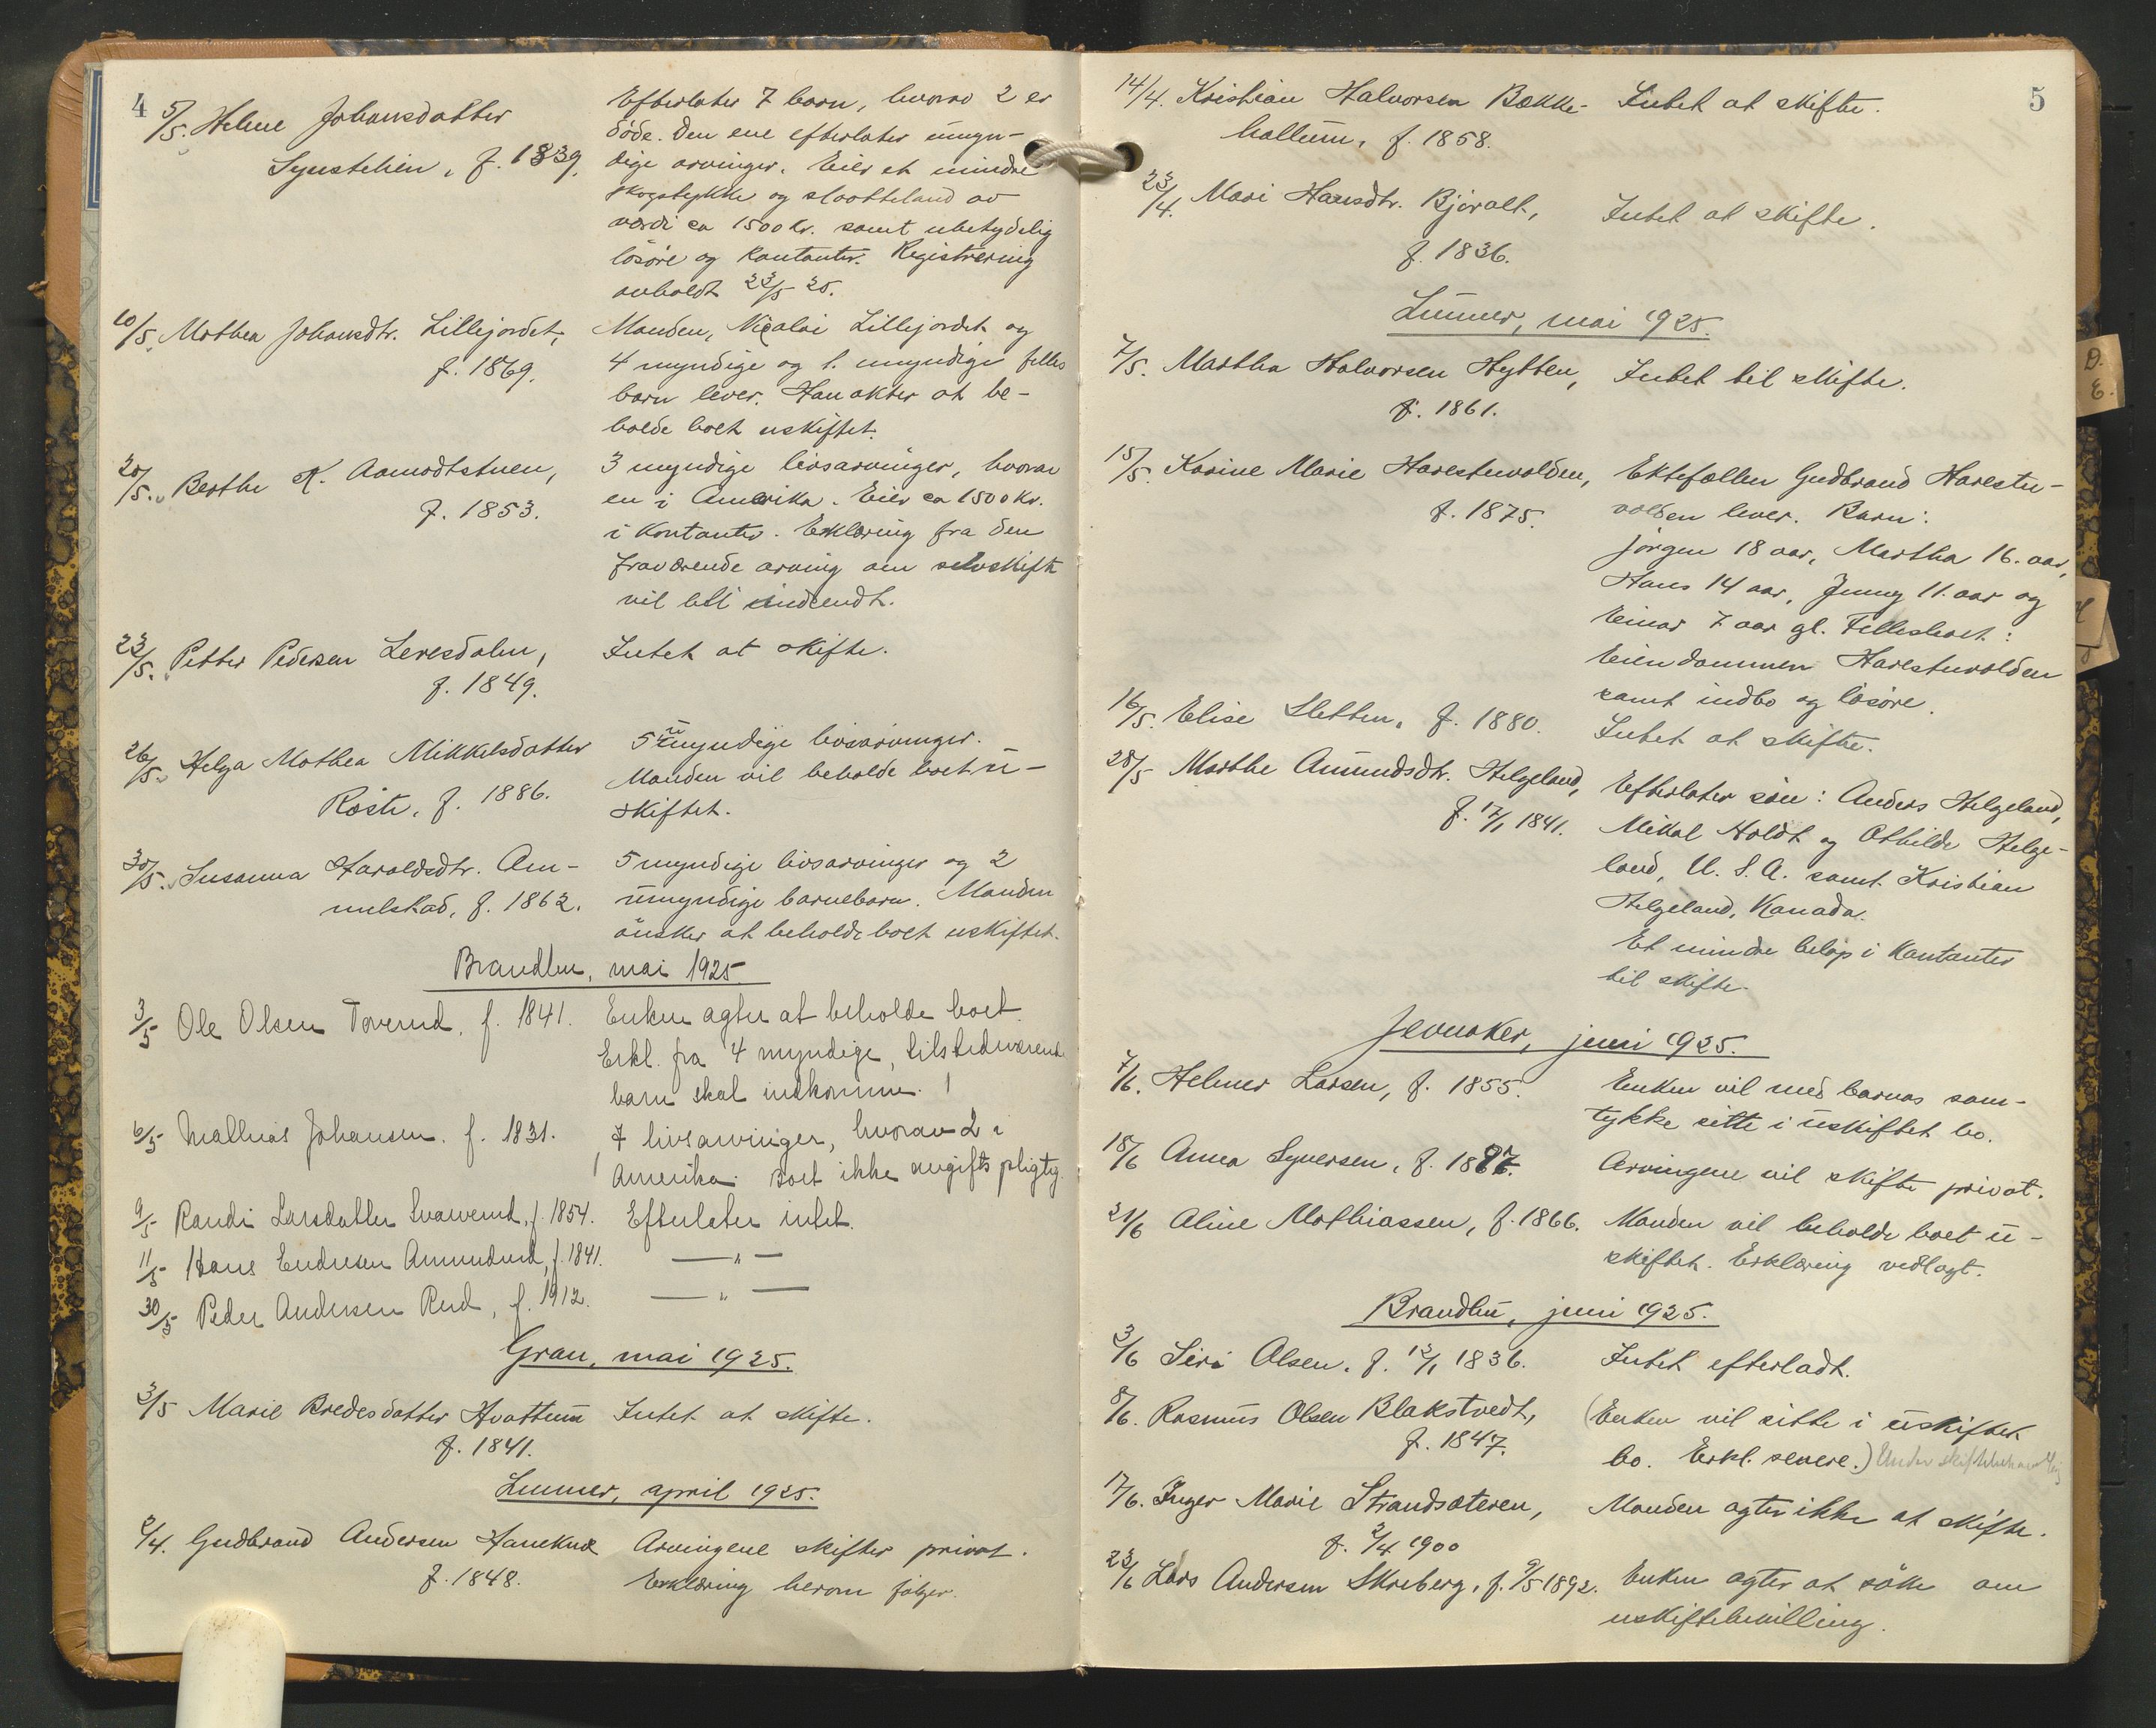 4
5/5. Helene Johansdatter
Synstelien, f. 1839.
Efterlater 7 barn, hvorav 2 er
døde. Den ene efterlater umyn-
dige arvinger. Eier et mindre
skogstykke og slaatteland av
værdi ca 1500 kr. samt ubetydelig
løsøre og kontanter. Registrering
avholdt 23/5 25.
10/5. Mathea Johansdtr. Lillejordet,
f. 1869.
Manden, Nicolai Lillejordet og
4 myndige og 1. umyndige felles
barn lever. Han akter at be-
holde boet uskiftet.
20/5. Berthe K. Aamodtstuen,
f. 1853.
3 myndige livsarvinger, hvorav
en i Amerika. Eier ca 1500 kr.
i kontanter. Erklæring fra den
fraværende arving om selvskifte
vil bli indsendt.
23/5. Petter Pedersen Leresdalen,
f. 1849.
Intet at skifte.
26/5. Helga Mathea Mikkelsdatter
Røste, f. 1886.
5 umyndige livsarvinger.
Manden vil beholde boet u-
skiftet.
30/5. Susanna Haraldsdtr. Am-
melstad, f. 1862.
5 myndige livsarvinger og 2
umyndige barnebarn. Manden
ønsker at beholde boet uskiftet.
Brandbu, mai 1925
3/5 Ole Olsen Toverud, f. 1841.
Enken agter at beholde boet.
Erkl. fra 4 myndige, tilstedeværende
barn skal indkomme.
6/5 Mathias Johansen. f. 1831.
7 livsarvinger, hvorav 2 i
Amerika. Boet ikke avgiftspligtig.
9/5 Randi Larsdatter Svarverud, f. 1854. Efterlater intet.
11/5 Hans Endresen Amundrud, f. 1841. — " —
30/5 Peder Andersen Rud, f. 1912. — " —
Gran, mai 1925.
3/5 Marie Bredesdatter Hvattum
f. 1841.
Intet at skifte.
Lunner, april 1925.
2/4. Gudbrand Andersen Hanekne
f. 1848.
Arvingene skifter privat.
Erklæring herom følger.
5
14/4. Kristian Halvorsen Bække-
hallum, f. 1858.
Intet at skifte.
23/4. Mari Hansdtr. Bjøralt,
f. 1836.
Intet at skifte.
Lunner, mai 1925.
7/5. Martha Halvorsen Hytten,
f. 1861.
Intet til skifte.
15/5. Karine Marie Harestuvolden,
f. 1875.
Ektefællen Gudbrand Harestu-
volden lever. Barn:
Jørgen 18 aar, Martha 16. aar,
Hans 14 aar, Jenny 11. aar og
Einar 7 aar gl. Fellesboet:
Eiendommen Harestuvolden
samt indbo og løsøre.
16/5. Elise Sletten, f. 1880.
Intet at skifte.
28/5 Marthe Amundsdtr. Helgeland,
f. 17/1 1841.
Efterlater søn: Anders Helgeland,
Mikal Holdt og Othilde Helge-
land, U. S. A. samt Kristian
Helgeland, Kanada.
Et mindre beløp i kontanter
til skifte.
Jevnaker, juni 1925.
7/6. Helmer Larsen, f. 1855.
Enken vil med barnas sam-
tykke sitte i uskiftet bo.
18/6 Anna Syversen, f. 1887.
Arvingene vil skifte privat.
21/6 Aline Mathiassen, f. 1866.
Manden vil beholde boet u-
skiftet. Erklæring vedlagt.
Brandbu, juni 1925.
3/6 Siri Olsen, f. 13/1 1836.
Intet efterladt.
8/6. Rasmus Olsen Blakstvedt,
f. 1847.
(Enken vil sitte i uskiftet
bo. Erkl. senere.) Under skiftebehandling
17/6. Inger Marie Strandsæteren,
f. 2/4 1900
Manden agter ikke at skifte.
23/6 Lars Andersen Skreberg, f. 9/5 1892.
Enken agter at søke om
uskiftebevilling.
D.
E.